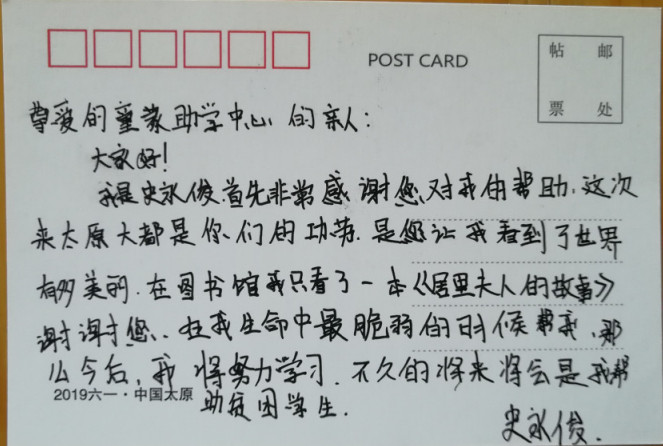 POST CARD
帖 邮
票 处
尊爱的童蒙助学中心的亲人:
大家好!
我是史永俊.首先非常感谢您对我的帮助.这次
来太原大都是你们的功劳.是您让我看到了世界
有多美的.在图书馆我只看了一本《居里夫人的故事》
谢谢您、在我生命中最脆弱的时候帮我、那
么今后,我将努力学习.不久的将来将会是我帮
2019六一·中国太原
助贫困学生.
史永俊.